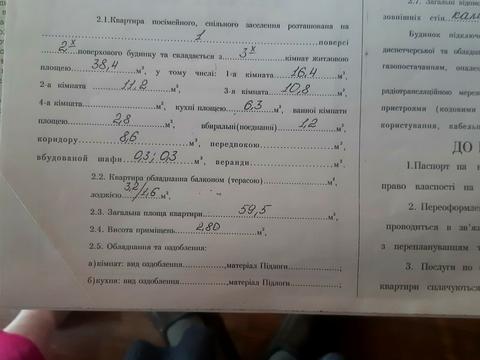 2.1.Квартира посімейного, спільного заселення розташована на
1 поверсі
2х поверхового будинку та складається з 3х кімнат житловою
площею 38,4 м², у тому числі: 1-а кімната 16,4 м²,
2-а кімната 11,2 м², 3-я кімната 10,8 м²,
4-а кімната м², кухні площею 6,3 м², ванної кімнати
площею 2,8 м², вбиральні(поєднаної) 1,2 м²,
коридору 8,6 м², передпокою м²,
вбудованої шафи 0,3; 0,3 м², веранди м².
2.2. Квартира обладнана балконом (терасою) м²,
лоджією 3,2/1,6 м²,
2.3. Загальна площа квартири 59,5 м²,
2.4. Висота приміщень 2,80 м².
2.5. Обладнання та оздоблення:
а)кімнат: вид оздоблення ,матеріал Підлоги ;
б)кухня: вид оздоблення ,матеріал Підлоги ;
зовнішніх стін
Будинок підключ
диспетчерської та обладна
газопостачанням, опале
радіотрансляційною мереж
пристроями (кодовими
користування, кабель
ДО
1.Паспорт на
право власності на
2. Переоформле
проводиться в зв'я
з переплануванням т
3. Послуги по
квартири сплачуються